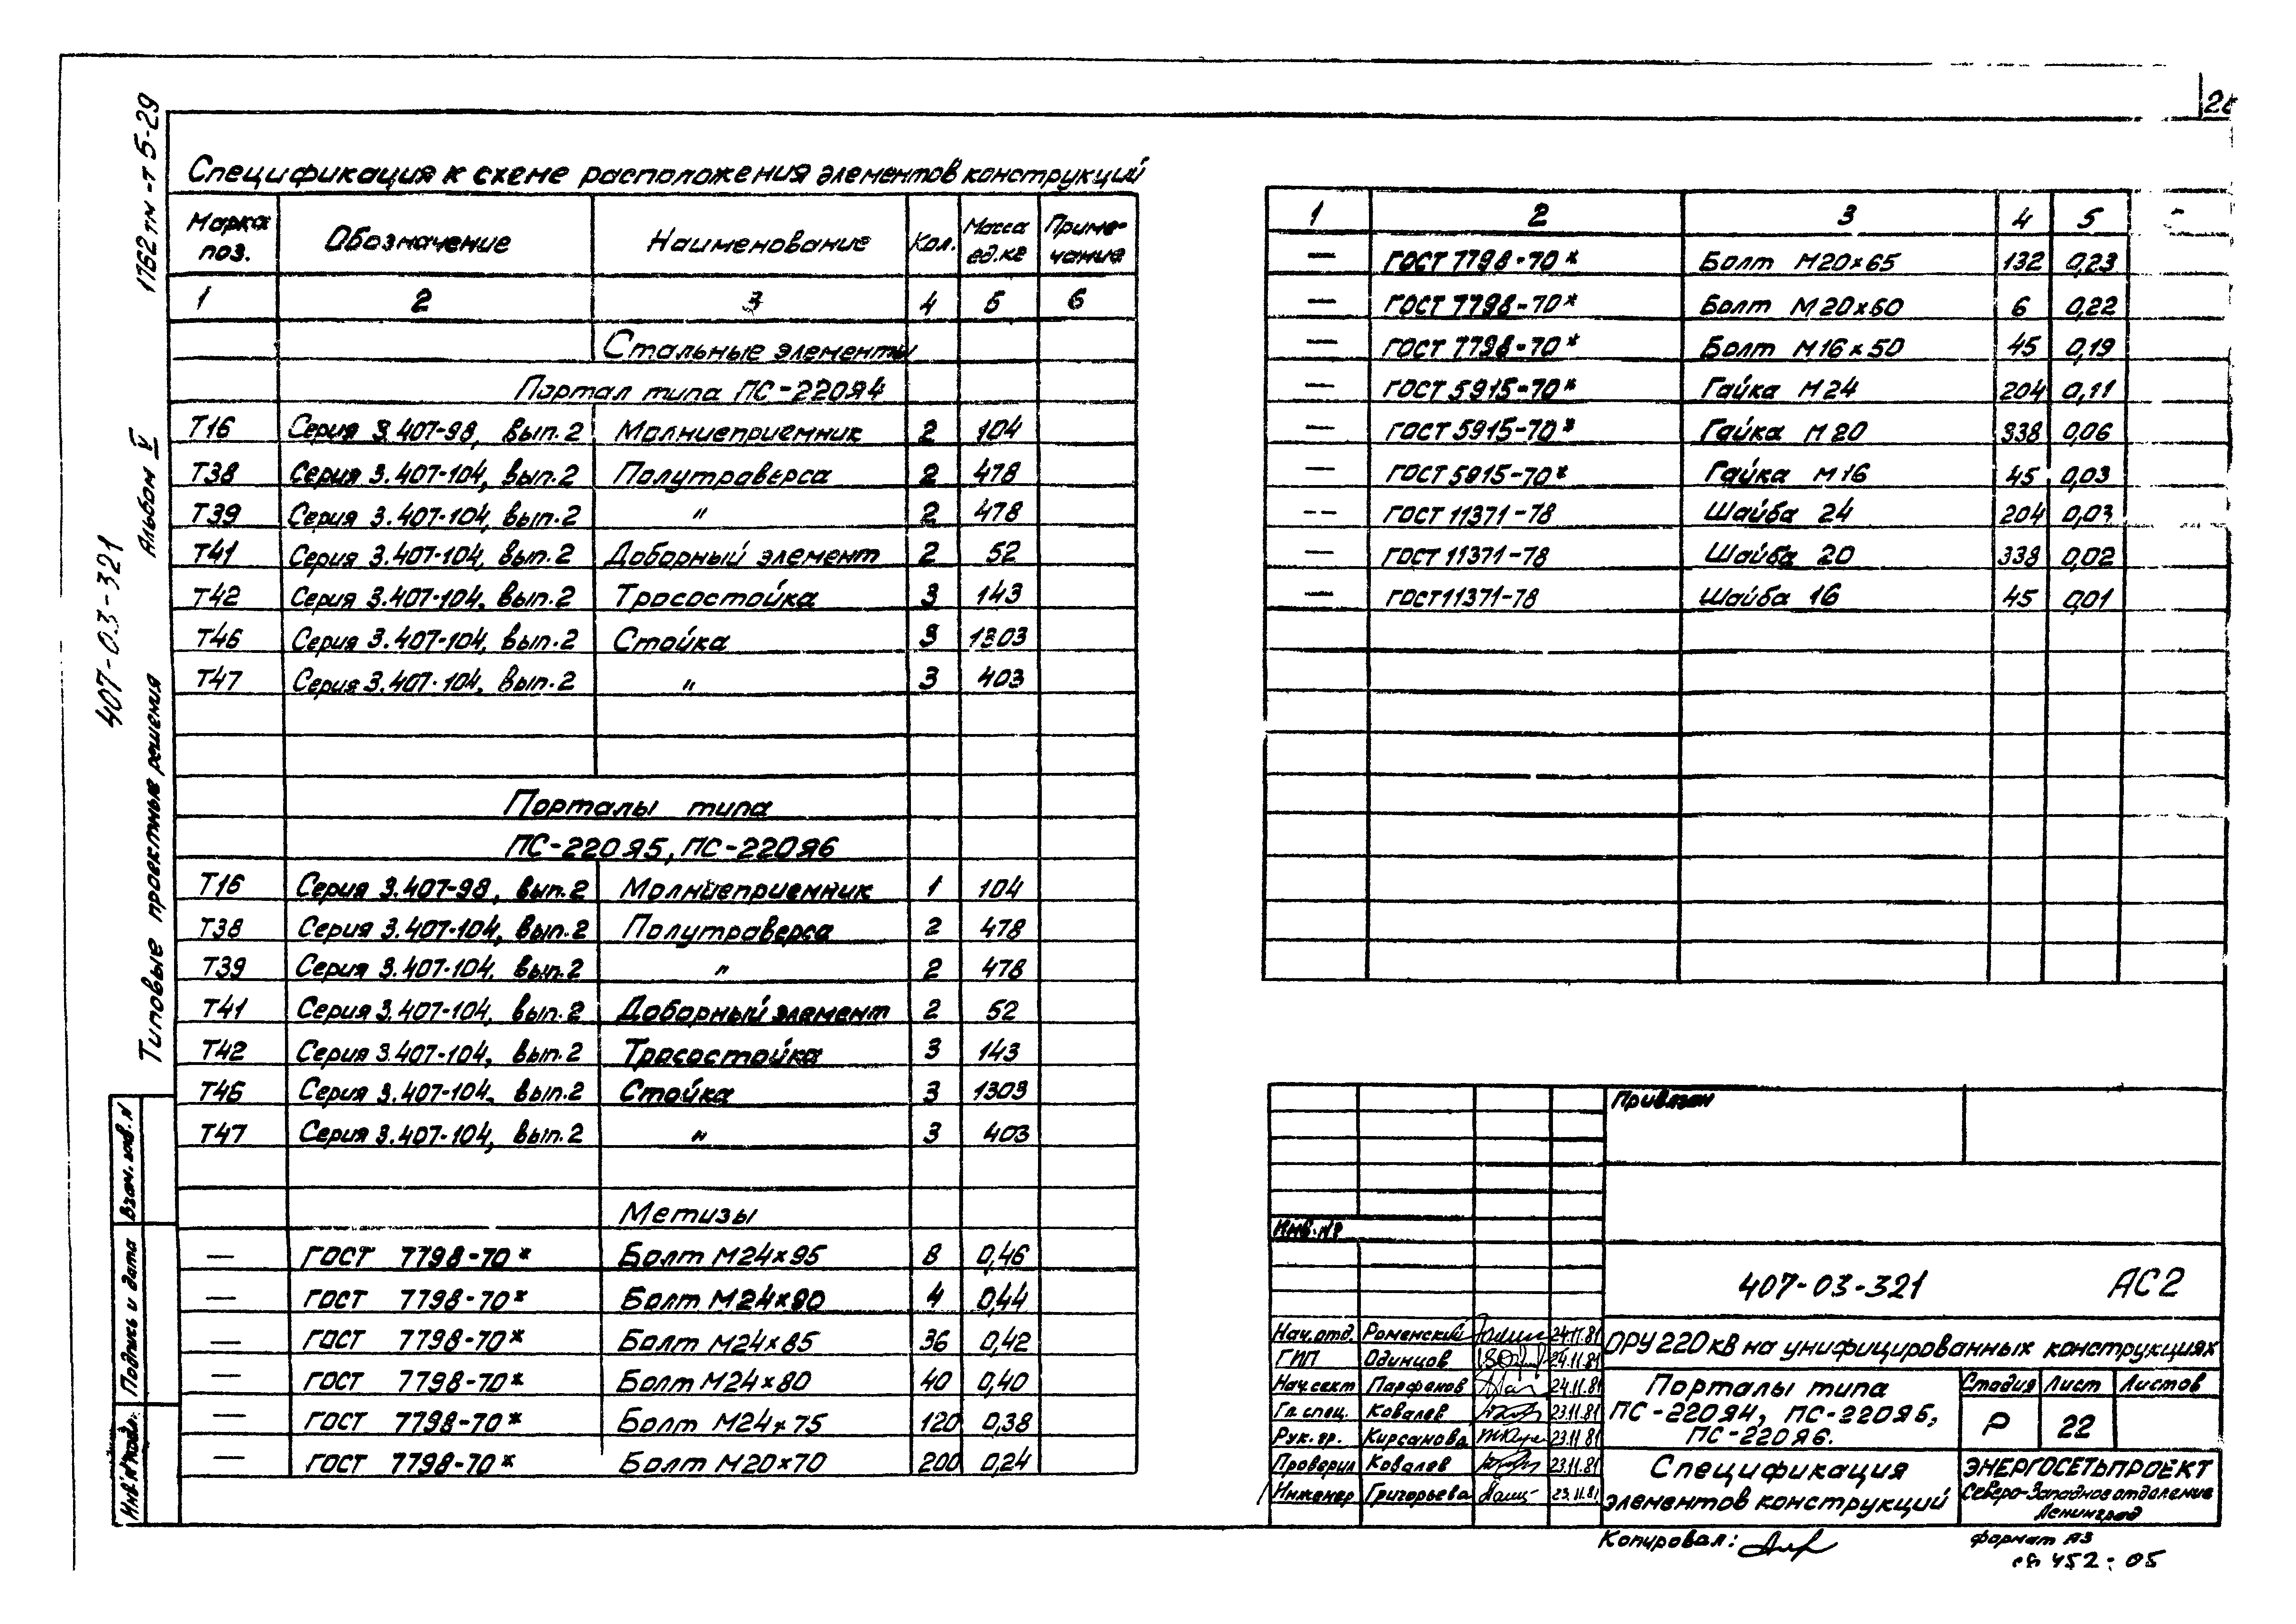 Спецификация к схеме расположения элементов конструкций
Марка поз. Обозначение Наименование Кол. Масса ед.кг Примечание
1 2 3 4 5 6
Стальные элементы
Портал типа ПС-220Я4
Т16 Серия 3.407-98, вып.2 Молниеприемник 2 104
Т38 Серия 3.407-104, вып.2 Полутраверса 2 478
Т39 Серия 3.407-104, вып.2 " 2 478
Т41 Серия 3.407-104, вып.2 Доборный элемент 2 52
Т42 Серия 3.407-104, вып.2 Тросостойка 3 143
Т46 Серия 3.407-104, вып.2 Стойка 3 1303
Т47 Серия 3.407-104, вып.2 " 3 403
Порталы типа
ПС-220Я5, ПС-220Я6
Т16 Серия 3.407-98, вып.2 Молниеприемник 1 104
Т38 Серия 3.407-104, вып.2 Полутраверса 2 478
Т39 Серия 3.407-104, вып.2 " 2 478
Т41 Серия 3.407-104, вып.2 Доборный элемент 2 52
Т42 Серия 3.407-104, вып.2 Тросостойка 3 143
Т46 Серия 3.407-104, вып.2 Стойка 3 1303
Т47 Серия 3.407-104, вып.2 " 3 403
Метизы
— ГОСТ 7798-70* Болт М24×95 8 0,46
— ГОСТ 7798-70* Болт М24×90 4 0,44
— ГОСТ 7798-70* Болт М24×85 36 0,42
— ГОСТ 7798-70* Болт М24×80 40 0,40
— ГОСТ 7798-70* Болт М24×75 120 0,38
— ГОСТ 7798-70* Болт М20×70 200 0,24
1 2 3 4 5
— ГОСТ 7798-70* Болт М20×65 132 0,23
— ГОСТ 7798-70* Болт М20×60 6 0,22
— ГОСТ 7798-70* Болт М16×50 45 0,19
— ГОСТ 5915-70* Гайка М24 204 0,11
— ГОСТ 5915-70* Гайка М20 338 0,06
— ГОСТ 5915-70* Гайка М16 45 0,03
— ГОСТ 11371-78 Шайба 24 204 0,03
— ГОСТ 11371-78 Шайба 20 338 0,02
— ГОСТ 11371-78 Шайба 16 45 0,01
1762тм-т5-29
Альбом V
407-03-321
Типовые проектные решения
Взам. инв. N
Подпись и дата
Инв. N подл.
Привязан
Инв. №
407-03-321 АС2
Нач.отд. Роменский 24.11.81
ГИП Одинцов 24.11.81
Нач.сект Парфенов 24.11.81
Гл.спец. Ковалев 23.11.81
Рук.гр. Кирсанова 23.11.81
Проверил Ковалев 23.11.81
Инженер Григорьева 23.11.81
ОРУ 220 кв на унифицированных конструкциях
Порталы типа
ПС-220Я4, ПС-220Я5,
ПС-220Я6.
Стадия Лист Листов
Р 22
Спецификация
элементов конструкций
ЭНЕРГОСЕТЬПРОЕКТ
Северо-Западное отделение
Ленинград
Копировал:
формат А3
452-05